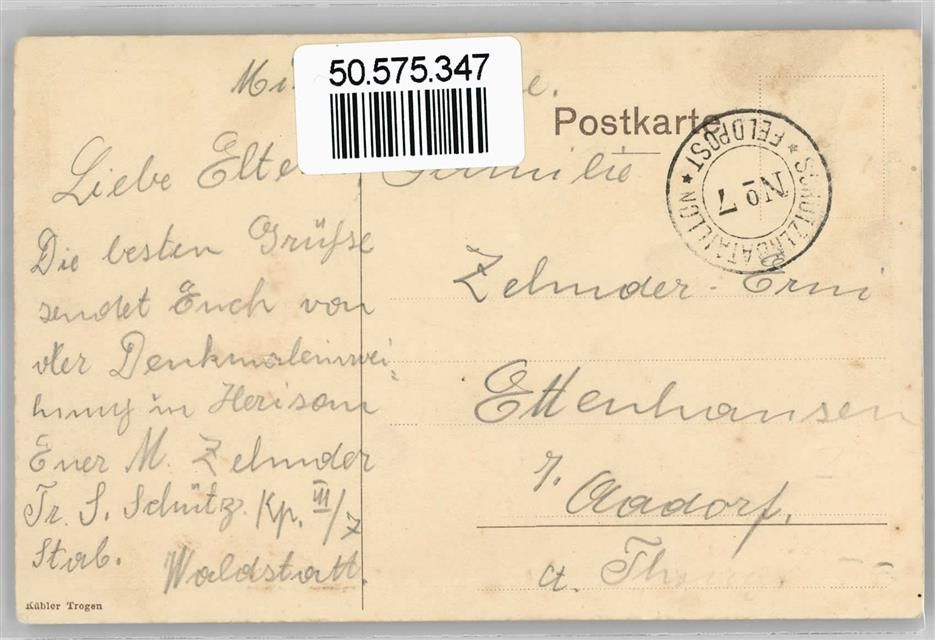 50.575.347
Postkarte
SCHÜTZENBATAILLON
No 7
* FELDPOST *
Liebe Elte Familie
Die besten Grüsse
sendet Euch von
der Denkmaleinwei-
hung in Herisau
Euer M. Zehnder
Tr. S. Schütz. Kp. III/7
Stab. Waldstatt.
Kübler Trogen
Zehnder-Erni
Ettenhausen
b. Aadorf.